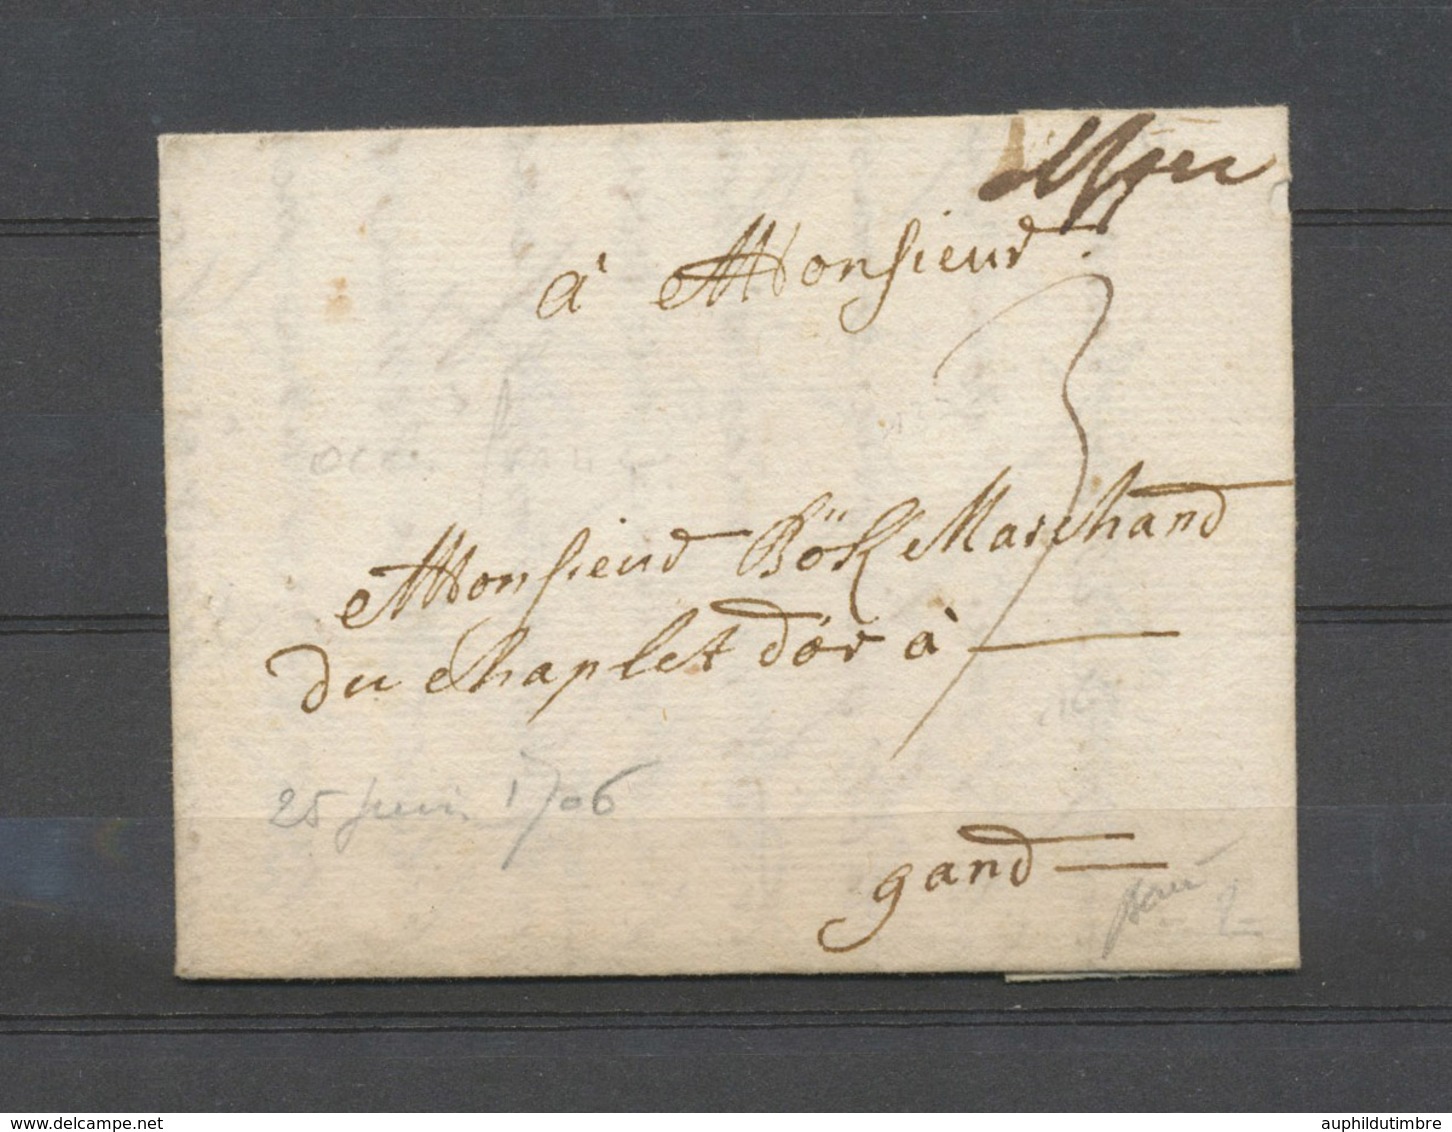 à Monsieur
3
Monsieur Bök Marchand
du Chaplet d'or à
25 juin 1706
gand
www.delcampe.net
auphildutimbre.com